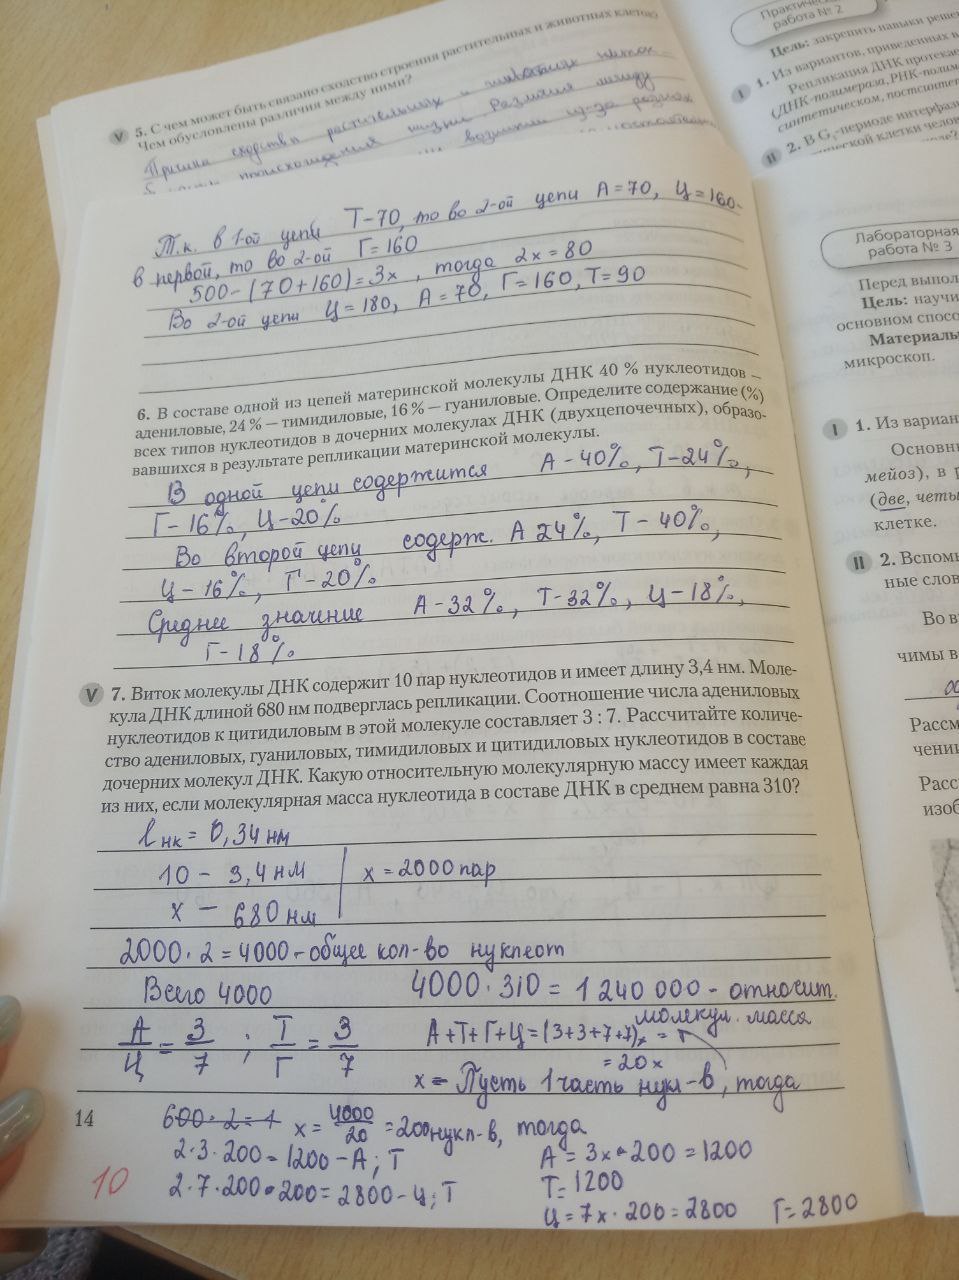 V 5. С чем может быть связано сходство строения растительных и животных клеток?
Чем обусловлены различия между ними?
Причина сходства растительных и животных клеток
происхождения жизни. Различия между
возникли из-за разных
Т.к. в 1-ой цепи Т-70, то во 2-ой цепи А=70, Ц=160-
в первой, то во 2-ой Г=160
500-(70+160)=3х, тогда 2х=80
Во 2-ой цепи Ц=180, А=70, Г=160, Т=90
6. В составе одной из цепей материнской молекулы ДНК 40 % нуклеотидов —
адениловые, 24 % — тимидиловые, 16 % — гуаниловые. Определите содержание (%)
всех типов нуклеотидов в дочерних молекулах ДНК (двухцепочечных), образо-
вавшихся в результате репликации материнской молекулы.
В одной цепи содержится А-40%, Т-24%,
Г-16%, Ц-20%
Во второй цепи содерж. А 24%, Т-40%,
Ц-16%, Г-20%
Среднее значение А-32%, Т-32%, Ц-18%,
Г-18%
V 7. Виток молекулы ДНК содержит 10 пар нуклеотидов и имеет длину 3,4 нм. Моле-
кула ДНК длиной 680 нм подверглась репликации. Соотношение числа адениловых
нуклеотидов к цитидиловым в этой молекуле составляет 3 : 7. Рассчитайте количе-
ство адениловых, гуаниловых, тимидиловых и цитидиловых нуклеотидов в составе
дочерних молекул ДНК. Какую относительную молекулярную массу имеет каждая
из них, если молекулярная масса нуклеотида в составе ДНК в среднем равна 310?
lнк = 0,34 нм
10 - 3,4 нм x = 2000 пар
x - 680 нм
2000·2=4000-общее кол-во нуклеот
Всего 4000 4000·310=1 240 000-относит.
молекул. масса
А/Ц = 3/7 ; Т/Г = 3/7 А+Т+Г+Ц=(3+3+7+7)х =
=20х
х - Пусть 1 часть нукл-в, тогда
600·2=1 х = 4000/20 =200нукл-в, тогда
2·3·200=1200-А; Т А=3х·200=1200
2·7·200·200=2800-Ц; Т Т=1200
Ц=7х·200=2800 Г=2800
14
10
Практическая
работа № 2
Цель: закрепить навыки реше
I 1. Из вариантов, приведенных
Репликация ДНК протекае
(ДНК-полимераза, РНК-полим
синтетическом, постсинте
II 2. В G1-периоде интерфаз
клетки чело
Лабораторная
работа № 3
Перед выпол
Цель: научи
основном спосо
Материалы
микроскоп.
I 1. Из вариан
Основны
мейоз), в р
(две, четы
клетке.
II 2. Вспомн
ные слов
Во в
чимы в
Рассм
чени
Расс
изоб